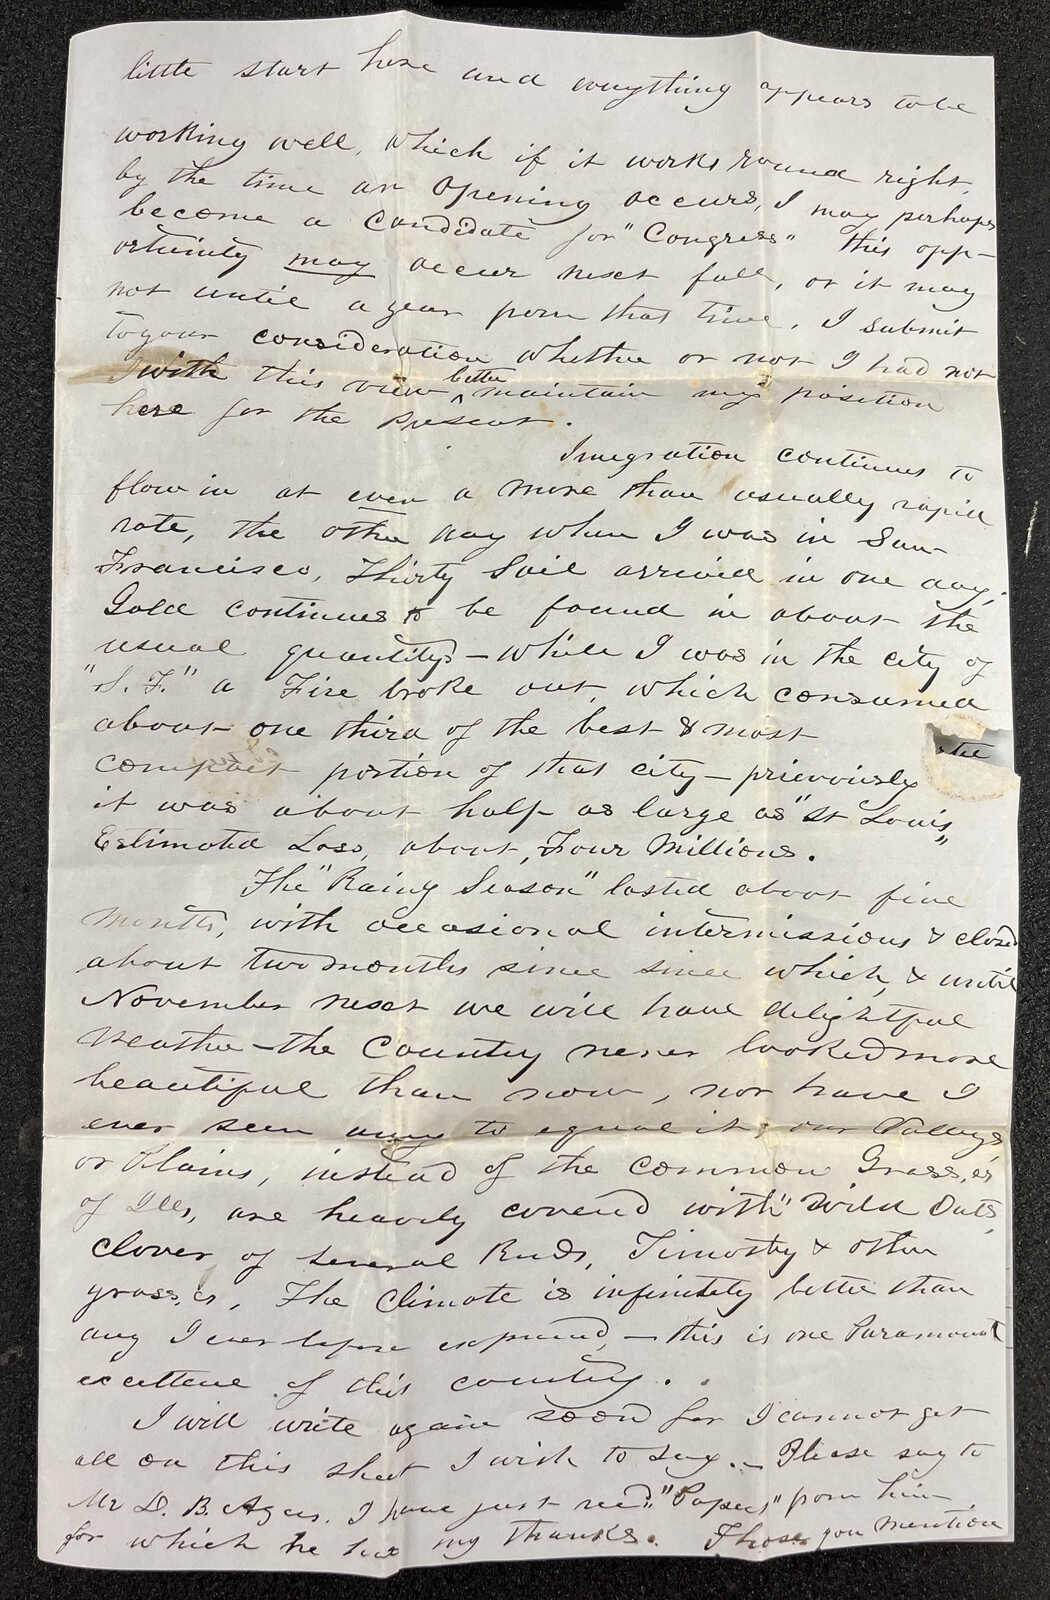 little start here and everything appears to be
working well, which if it works round right,
by the time an opening occurs, I may perhaps
become a Candidate for "Congress" this opp-
ortunity may occur next fall, or it may
not until a year from that time, I submit
to your consideration whether or not I had not
with this view better maintain my position
here for the present.
Imegration continues to
flow in at even a more than usually rapid
rate, the other day when I was in San-
Francisco, Thirty Sail arrived in one day,
Gold continues to be found in about the
usual quantity - while I was in the city of
"S. F." a Fire broke out, which consumed
about one third of the best & most
compact portion of that city - prievously
it was about half as large as "St Louis"
Estimated Loss, about, Four Millions.
The "Rainy Season" lasted about five
months, with occasional intermissions & closed
about two months since since which, & until
November next we will have delightful
weather - the Country never looked more
beautiful than now, nor have I
ever seen any to equal it, our Valleys
or Plains, instead of the common Grass,es
of Ills, are heavily covered with "Wild Oats,
clover of several kinds, Timothy & other
grass,es, The Climate is infinitely better than
any I ever before expeienced, - this is one Paramount
excellence of this country.
I will write again soon for I cannot get
all on this sheet I wish to say. - Please say to
Mr D. B. Ayers. I have just recd. "Papers," from him
for which he has my thanks. Those you mention